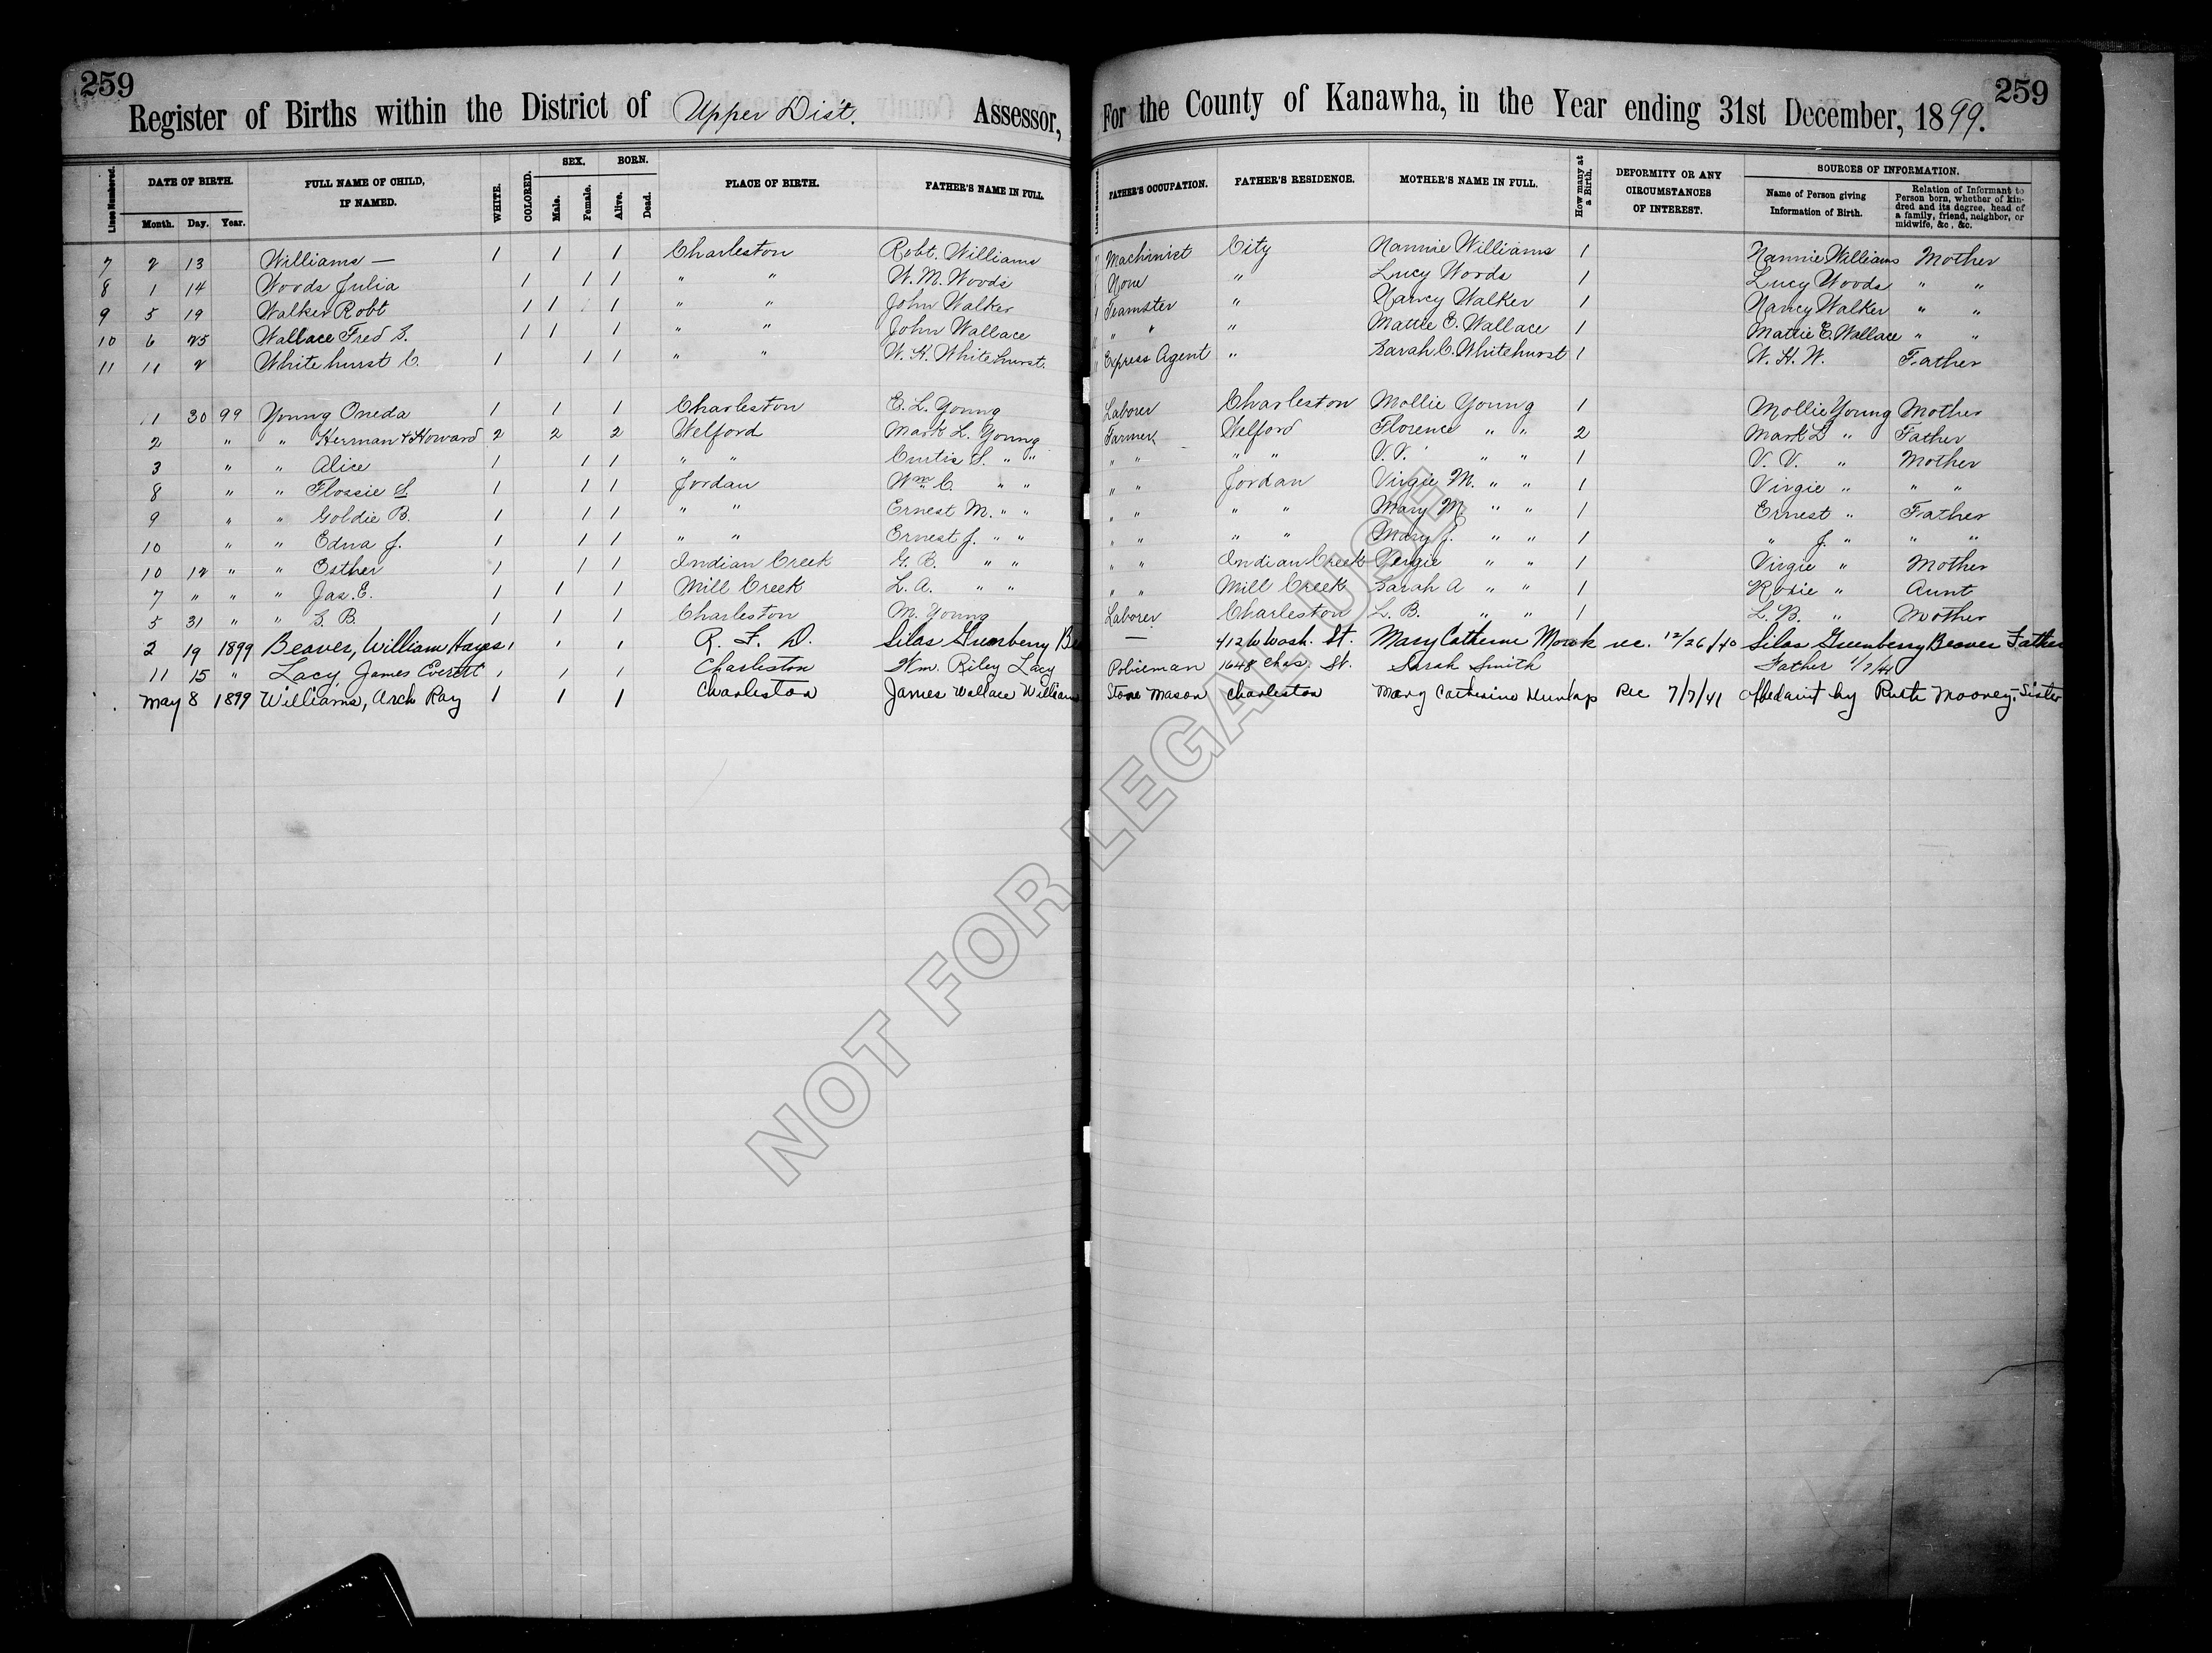 259 259
Register of Births within the District of Upper Dist. Assessor, For the County of Kanawha, in the Year ending 31st December, 1899.
Lines Numbered. DATE OF BIRTH. Month. Day. Year. FULL NAME OF CHILD, IF NAMED. WHITE. COLORED. SEX. Male. Female. BORN. Alive. Dead. PLACE OF BIRTH. FATHER'S NAME IN FULL. Lines Numbered. FATHER'S OCCUPATION. FATHER'S RESIDENCE. MOTHER'S NAME IN FULL. How many at a Birth. DEFORMITY OR ANY CIRCUMSTANCES OF INTEREST. SOURCES OF INFORMATION. Name of Person giving Information of Birth. Relation of Informant to Person born, whether of kindred and its degree, head of a family, friend, neighbor, or midwife, &c., &c.
7 2 13 Williams — 1 1 1 Charleston Robt. Williams 7 Machinist City Nannie Williams 1 Nannie Williams Mother
8 1 14 Woods Julia 1 1 1 " " W. M. Woods None " Lucy Woods 1 Lucy Woods " "
9 5 19 Walker Robt 1 1 1 " " John Walker Teamster " Nancy Walker 1 Nancy Walker " "
10 6 25 Wallace Fred S. 1 1 1 " " John Wallace " " " Mattie E. Wallace 1 Mattie E. Wallace " "
11 11 2 Whitehurst C. 1 1 1 " " W. H. Whitehurst. Express Agent " Sarah C. Whitehurst 1 W. H. W. Father
1 30 99 Young Oneda 1 1 1 Charleston E. L. Young Laborer Charleston Mollie Young 1 Mollie Young Mother
2 " " Herman & Howard 2 2 2 Welford Mark L. Young Farmer Welford Florence " " 2 Mark L " Father
3 " " Alice 1 1 1 " " Curtis S. " " " " " " V. V. " " 1 V. V. " Mother
8 " " Flossie S 1 1 1 Jordan Wm C. " " " " Jordan Virgie M. " " 1 Virgie " " "
9 " " Goldie B. 1 1 1 " " Ernest M. " " " " " " Mary M. " " 1 Ernest " Father
10 " " Edna J. 1 1 1 " " Ernest J. " " " " " " Mary J. " " 1 " J. " " "
10 12 " " Esther 1 1 1 Indian Creek G. B. " " " " Indian Creek Vergie " " 1 Virgie " Mother
7 " " " Jas. E. 1 1 1 Mill Creek L. A. " " " " Mill Creek Sarah A " " 1 Rosie " Aunt
5 31 " " S. B. 1 1 1 Charleston M. Young Laborer Charleston L. B. " " 1 L. B. " Mother
2 19 1899 Beaver, William Hayes 1 1 1 R. F. D. Silas Greenberry Be — 412 W Wash. St. Mary Catherine 12/26/40 Silas Greenberry Beaver Father
11 15 " Lacy James Everett 1 1 1 Charleston Wm. Riley Lacy Policeman 1648 Chas. St. Sarah Smith Father 1/7/41
May 8 1899 Williams, Arch Ray 1 1 1 Charleston James Wallace William Stone Mason Charleston Mary Catherine Dunlap Rec 7/7/41 Affedavit by Ruth Mooney, Sister
NOT FOR LEGAL USE